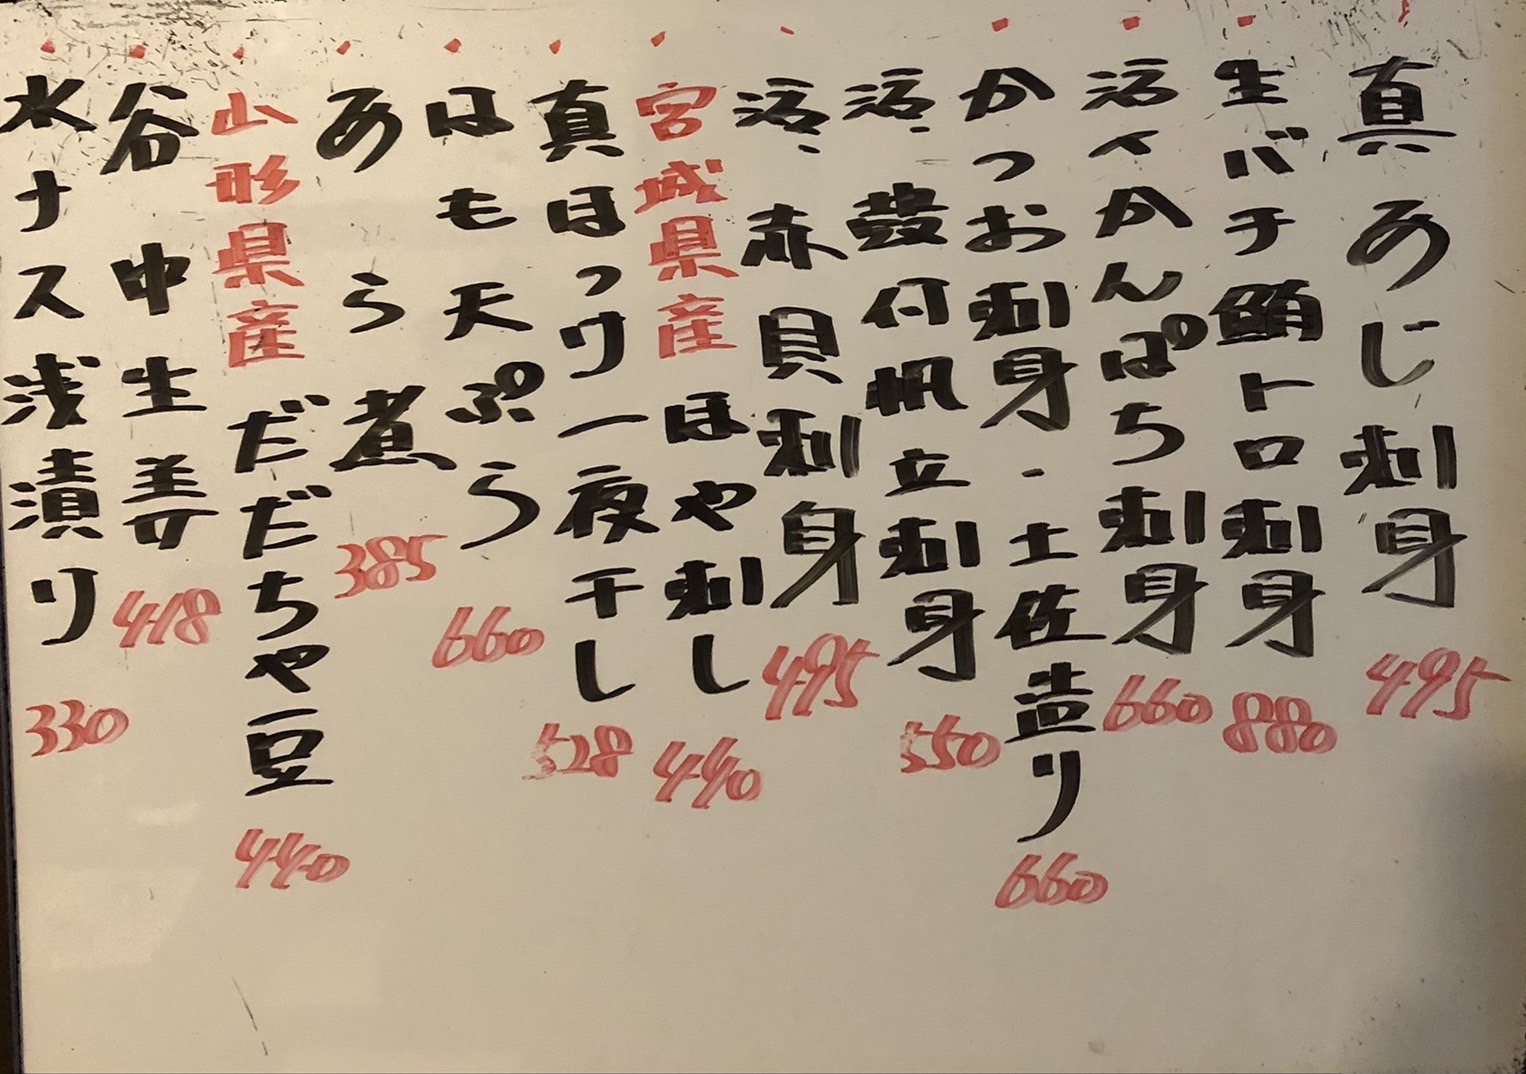 真あじ刺身 495
生バチ鮪トロ刺身 880
活〆かんぱち刺身 660
かつお刺身・土佐造り 660
活・殻付帆立刺身 550
活・赤貝刺身 495
宮城県産 ほや刺し 440
真ほっけ一夜干し 528
はも天ぷら 660
あら煮 385
山形県産 だだちゃ豆 440
谷中生姜 418
水ナス浅漬り 330